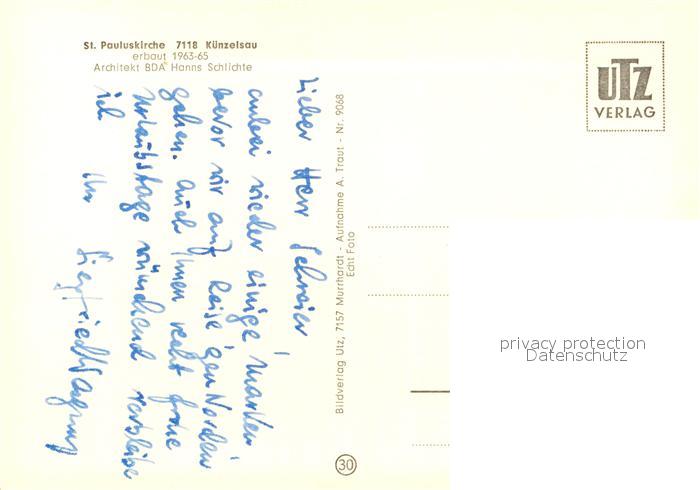 St. Pauluskirche 7118 Künzelsau
erbaut 1963-65
Architekt BDA Hanns Schlichte
Lieber Herr Schreier,
anbei wieder einige Marken
bevor wir auf Reise gen Norden
gehen. Auch Ihnen recht frohe
Urlaubstage wünschend verbleibe
ich
Ihr Siegfried
Bildverlag Utz, 7157 Murrhardt - Aufnahme A. Traut - Nr. 9068
Echt Foto
30
UTZ
VERLAG
privacy protection
Datenschutz